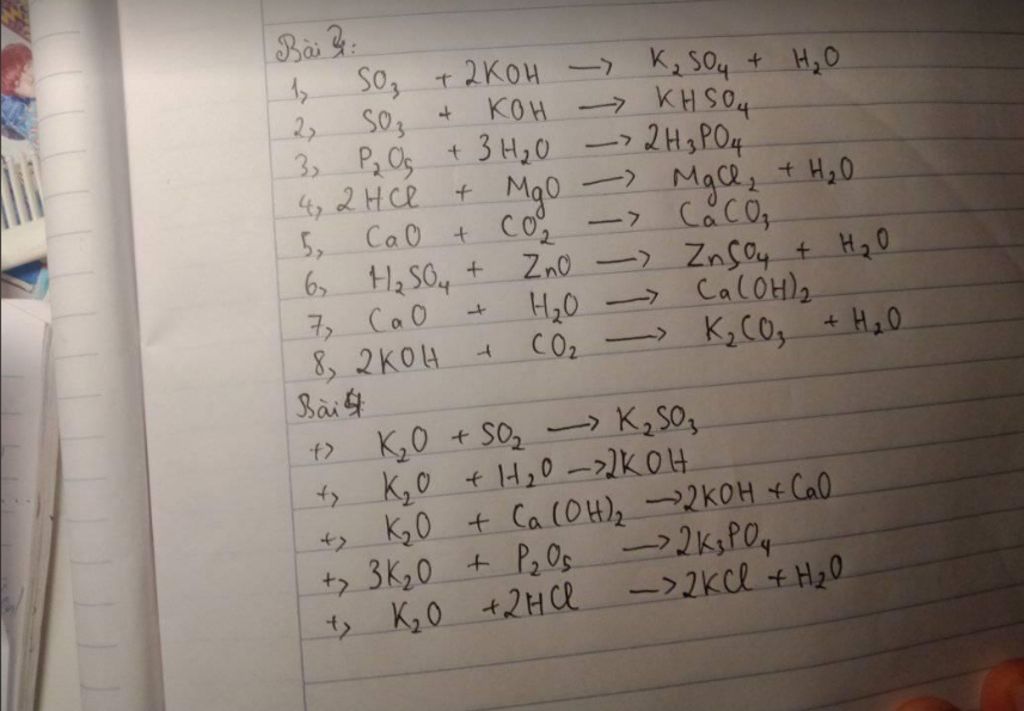 Bài 3:
1, SO₃ + 2KOH → K₂SO₄ + H₂O
2, SO₃ + KOH → KHSO₄
3, P₂O₅ + 3H₂O → 2H₃PO₄
4, 2HCl + MgO → MgCl₂ + H₂O
5, CaO + CO₂ → CaCO₃
6, H₂SO₄ + ZnO → ZnSO₄ + H₂O
7, CaO + H₂O → Ca(OH)₂
8, 2KOH + CO₂ → K₂CO₃ + H₂O
Bài 4:
+, K₂O + SO₂ → K₂SO₃
+, K₂O + H₂O → 2KOH
+, K₂O + Ca(OH)₂ → 2KOH + CaO
+, 3K₂O + P₂O₅ → 2K₃PO₄
+, K₂O + 2HCl → 2KCl + H₂O